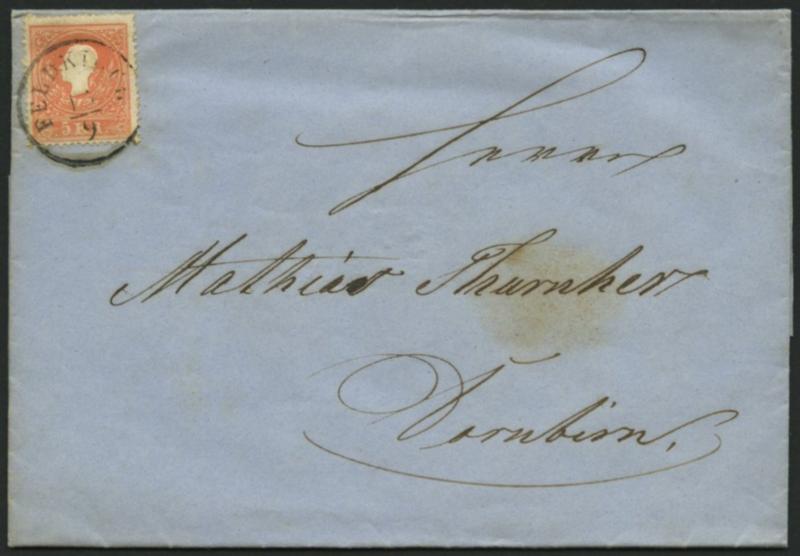 FELDKIRCH
11
9
5 KR
Herrn
Mathias Thurnher
Dornbirn.